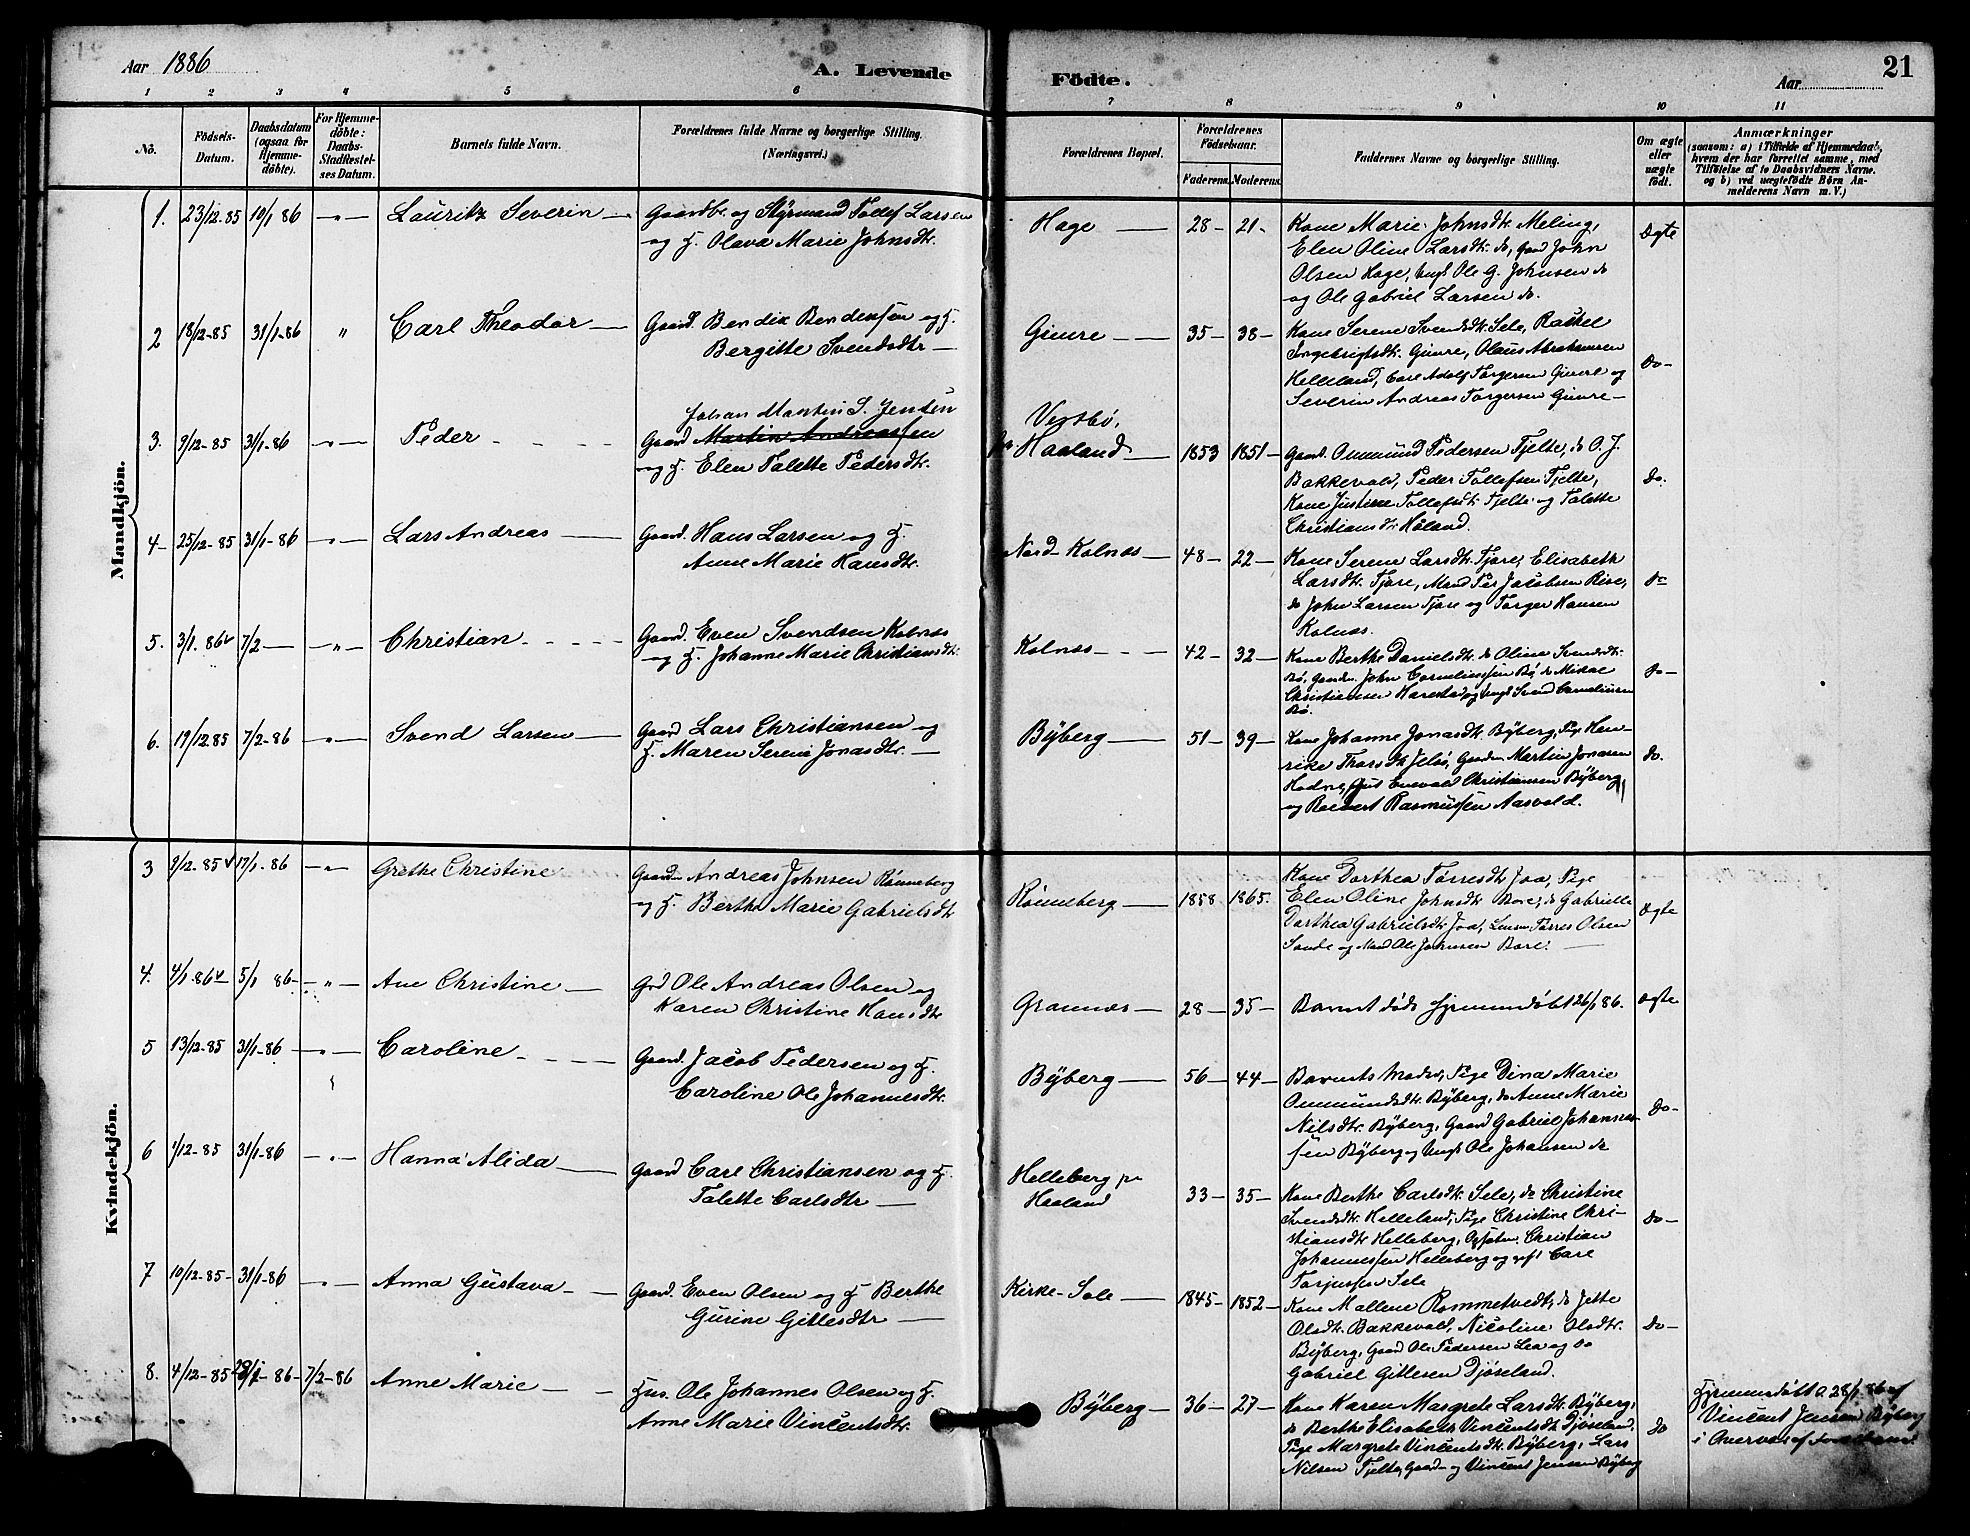 Aar 1886
A. Levende
Födte.
Aar
21
1 2 3 4 5 6 7 8 9 10 11
No.
Födsels-
Datum.
Daabsdatum
(ogsaa for
Hjemme-
döbte).
For Hjemme-
döbte:
Daabs-
Stadfæstel-
ses Datum.
Barnets fulde Navn.
Forældrenes fulde Navne og borgerlige Stilling.
(Næringsvei.)
Forældrenes Bopæl.
Forældrenes
Födselsaar.
Faderens. Moderens.
Faddernes Navne og borgerlige Stilling.
Om ægte
eller
uægte
födt.
Anmærkninger
(saasom: a) i Tilfælde af Hjemmedaab,
hvem der har forrettet samme, med
Tilföielse af to Daabsvidners Navne.
og b) ved uægtefödte Börn An-
melderens Navn m. V.)
Mandkjön.
1. 23/12.85 10/1 86 " Lauritz Severin
Gaardbr. og Styrmand Tollef Larsen
og H. Olava Marie Johnsdtr.
Hage 28 21
Kone Marie Johnsdtr. Meling,
Elen Oline Larsdtr. do, Gaard John
Olsen Hage, Ungk Ole G. Johnsen do
og Ole Gabriel Larsen do.
Ægte
2 18/12-85 31/1-86 " Carl Theodor
Gaard. Bendik Bendiksen og H.
Bergitte Svendsdtr
Gimre 35 38
Kone Serene Svendsdtr. Sele, Rakkel
Ingebrigtsdtr. Gimre, Olaus Abrahamsen
Helleland, Carl Adolf Torgersen Gimre og
Severin Andreas Torgersen Gimre
Do
3. 9/12-85 31/1-86 " Peder
Johan Martin S. Jensen
Gaard Martin Andreassen
og H. Elen Talette Pedersdtr.
Haaland 1853 1851
Gaard. Ommund Pedersen Tjelte, do O. J.
Bakkevold, Peder Tollefsen Tjelte,
Kone Justine Tollefsdtr. Tjelte og Talette
Christiansdtr Haland.
Do.
4 25/12-85 31/1-86 " Lars Andreas
Gaard. Hans Larsen og H.
Anne Marie Hansdtr.
Nord-Kolnæs 48 22
Kone Serene Larsdtr. Tjore, Elisabeth
Larsdtr. Tjore, Mand Per Jacobsen Rise,
do John Larsen Tjore og Torger Hansen
Kolnæs.
Do
5. 3/1.86 7/2 " Christian
Gaard. Even Svendsen Kolnæs
og H. Johanne Marie Christiansdtr.
Kolnæs 42 32
Kone Berthe Danielsdtr. do Oline Svendsdtr.
Bø, Gaardm. John Corneliussen Bø, do Mikal
Christiansen Harestad og Ungk Svend Corneliussen
Bø.
Do
6. 19/12.85 7/2-86 " Svend Larsen
Gaard Lars Christiansen og
H. Maren Serene Jonasdtr.
Byberg 51 39
Kone Johanne Jonasdtr. Byberg, Pige Hen-
rike Thorsdtr Jelsø, Gaardm Martin Jonasen
Hodne, Enevald Christiansen Byberg
og Reiert Rasmussen Aasvold.
Do.
Kvindekjön.
3 9/12-85 17/1-86 " Grethe Christine
Gaardm Andreas Johnsen Rönneberg
og H. Berthe Marie Gabrielsdtr
Rönneberg 1858 1865.
Kone Dorthea Torresdtr Joa, Pige
Elen Oline Johnsdtr Bore, do Gabrielle
Dorthea Gabrielsdtr Joa, Lensm. Torres Olsen
Sande og Mand Ole Johnsen Bore.
Ægte
4. 4/1.86 5/1 86 " Ane Christine
Grd Ole Andreas Olsen og
Karen Christine Hansdtr
Grannæs 28 35
Barnet døde hjemmedøbt 26/1 86.
Ægte
5 13/12-85 31/1-86 " Caroline
Gaard. Jacob Pedersen og H.
Caroline Ole Johannesdtr.
Byberg 56 44
Barnets Moder, Pige Dina Marie
Ommundsdtr. Byberg, do Anne Marie
Nilsdtr. Byberg, Gaard Gabriel Johannes-
sen Byberg og Ungk Ole Johansen do
Do
6 1/12-85 31/1-86 " Hanna Alida
Gaard Carl Christiansen og H.
Talette Carlsdtr
Helleberg pr
Haaland 33 35
Kone Berthe Carlsdtr. Sele, do Christine
Svendsdtr. Helleland, Pige Christine Chri-
stiansdtr Helleberg, Christian
Johannessen Helleberg og Carl
Torjussen Sele
Do
7 10/12-85 31/1-86 " Anna Gustava
Gaard. Even Olsen og H Berthe
Gurine Gitlesdtr
Kirke-Sole 1845 1852
Kone Mallene Rommetvedt, do Jette
Olsdtr. Bakkevold, Nicoline Olsdtr.
Byberg, Gaard Ole Pedersen Lea og do
Gabriel Gitlesen Djøseland.
Do
8. 4/12-85 28/1-86 7/2-86 Anne Marie
Hus. Ole Johannes Olsen og H.
Anne Marie Vincentsdtr.
Byberg 36 27
Kone Karen Margrete Larsdtr. Byberg,
do Berthe Elisabeth Vincentsdtr Djøseland,
Pige Margrete Vincentsdtr. Byberg, Lars
Nilsen Tjelte, Gaard og Vincent Jensen Byberg
Do
Hjemmedøbt 28/1.86 af
Vincent Jensen Byberg
i Overvær af